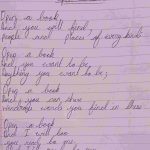 Open a book,
And you will find,
people and places of every kind
Open a book
And you want to be,
Anything you want to be,
Open a book
And, you can share
wondrous words you find in there
Open a book
And I will too
you read to me,